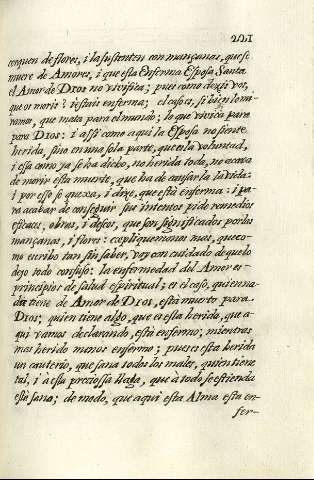 221
cerquen de flores, i la sustenten con mançanas, que se
muere de Amores, i que esta Enferma Esposa Santa
el Amor de DIOS no vivifica; pues como dexis vos,
que os morir? i estais enferma; el caso es, si bien lo mi-
ramos, que mata para el mundo; lo que vivica para
para DIOS: i assi como aqui la Esposa no siente
herida, sino en una sola parte, que es la voluntad,
i essa como ya se ha dicho, no herida toda, no acava
de morir esta muerte, que ha de causar la vida:
i por esso se quexa, i dice, que está enferma: i pa-
ra acabar de conseguir sus intentos pide remedios
eficaces, obras, i deseos, que son significados por las
mançanas, i flores: expliquemonos mas, que co-
mo escribo tan sin saber, voy con cuidado de que lo
dejo todo confuso: la enfermedad del Amor es
principios de salud espiritual; es el caso, quien na-
da tiene de Amor de DIOS, está muerto para
DIOS; quien tiene algo, que es esta herida, que a-
qui vamos declarando, está enfermo; mientras
mas herido menos enfermo; pues es esta herida
un cauterio, que sana todos los males, quien tiene
tal, i a essa preciossa llaga, que à todo se estienda
está sano; de modo, que aqui esta Alma está en-
fer-